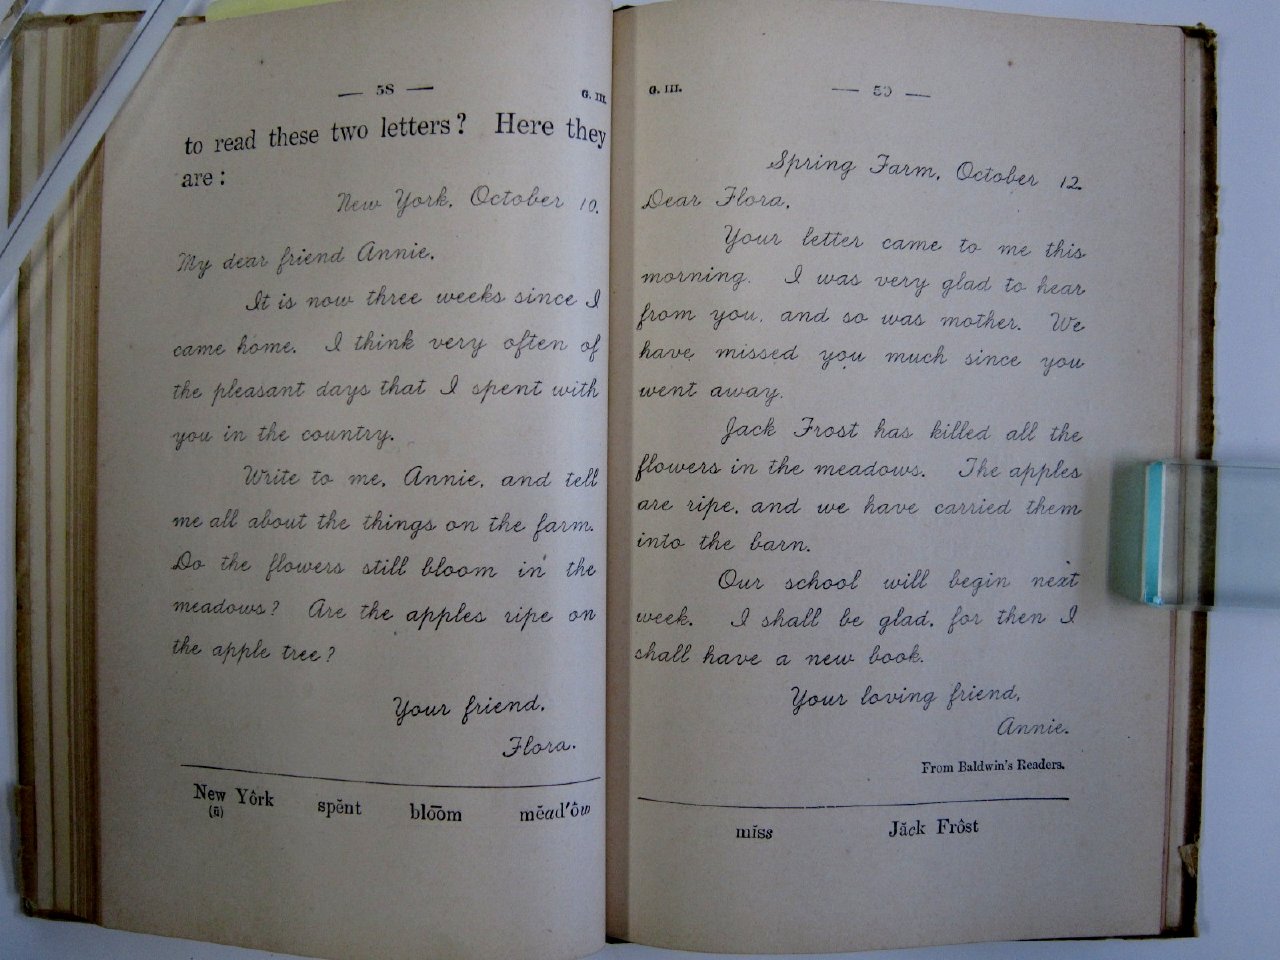 — 58 —
G. III.
to read these two letters? Here they
are:
New York, October 10.
My dear friend Annie.
It is now three weeks since I
came home. I think very often of
the pleasant days that I spent with
you in the country.
Write to me, Annie, and tell
me all about the things on the farm.
Do the flowers still bloom in the
meadows? Are the apples ripe on
the apple tree?
Your friend,
Flora.
New Yôrk spĕnt blo͞om mĕad′ōw
(ū)
G. III.
— 59 —
Spring Farm, October 12.
Dear Flora,
Your letter came to me this
morning. I was very glad to hear
from you, and so was mother. We
have missed you much since you
went away.
Jack Frost has killed all the
flowers in the meadows. The apples
are ripe, and we have carried them
into the barn.
Our school will begin next
week. I shall be glad, for then I
shall have a new book.
Your loving friend,
Annie.
From Baldwin's Readers.
mĭss Jăck Frôst